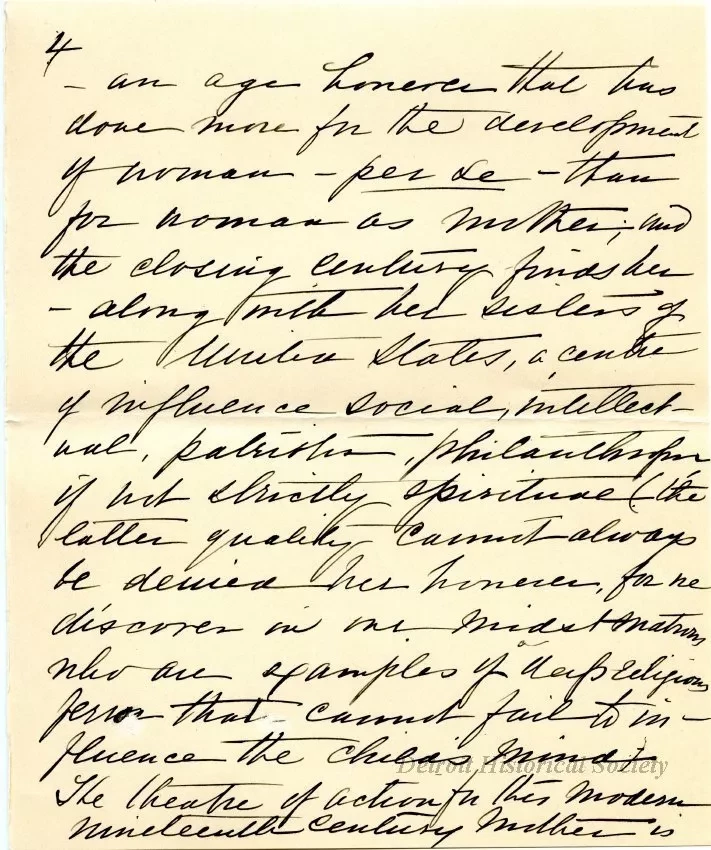 4
- an age however that has
done more for the development
of woman - per se - than
for woman as mother; and
the closing century finds her
- along with her sisters of
the United States, a centre
of influence social, intellect-
ual, patriotic, philanthropic
if not strictly spiritual (the
latter quality cannot always
be denied her however, for we
discover in our midst matrons
who are examples of a deep religious
fervor that cannot fail to in-
fluence the child's mind.
Detroit Historical Society
The theatre of action for this modern
nineteenth century Mother is